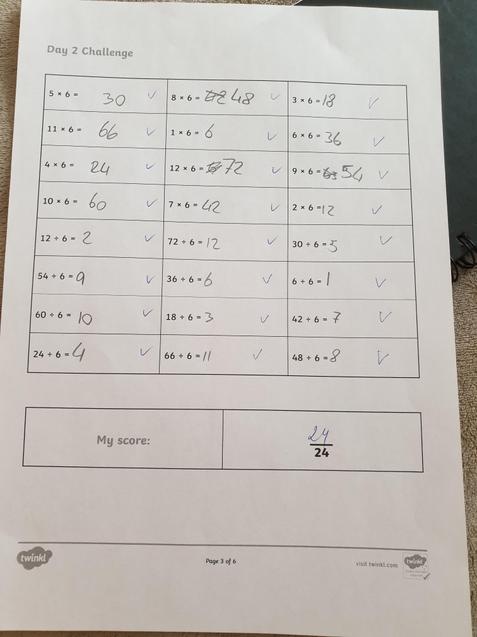 Day 2 Challenge
5 × 6 = 30 ✓ 8 × 6 = 48 ✓ 3 × 6 = 18 ✓
11 × 6 = 66 ✓ 1 × 6 = 6 ✓ 6 × 6 = 36 ✓
4 × 6 = 24 ✓ 12 × 6 = 72 ✓ 9 × 6 = 54 ✓
10 × 6 = 60 ✓ 7 × 6 = 42 ✓ 2 × 6 = 12 ✓
12 ÷ 6 = 2 ✓ 72 ÷ 6 = 12 ✓ 30 ÷ 6 = 5 ✓
54 ÷ 6 = 9 ✓ 36 ÷ 6 = 6 ✓ 6 ÷ 6 = 1 ✓
60 ÷ 6 = 10 ✓ 18 ÷ 6 = 3 ✓ 42 ÷ 6 = 7 ✓
24 ÷ 6 = 4 ✓ 66 ÷ 6 = 11 ✓ 48 ÷ 6 = 8 ✓
My score: 24
24
twinkl Page 3 of 6 visit twinkl.com twinkl